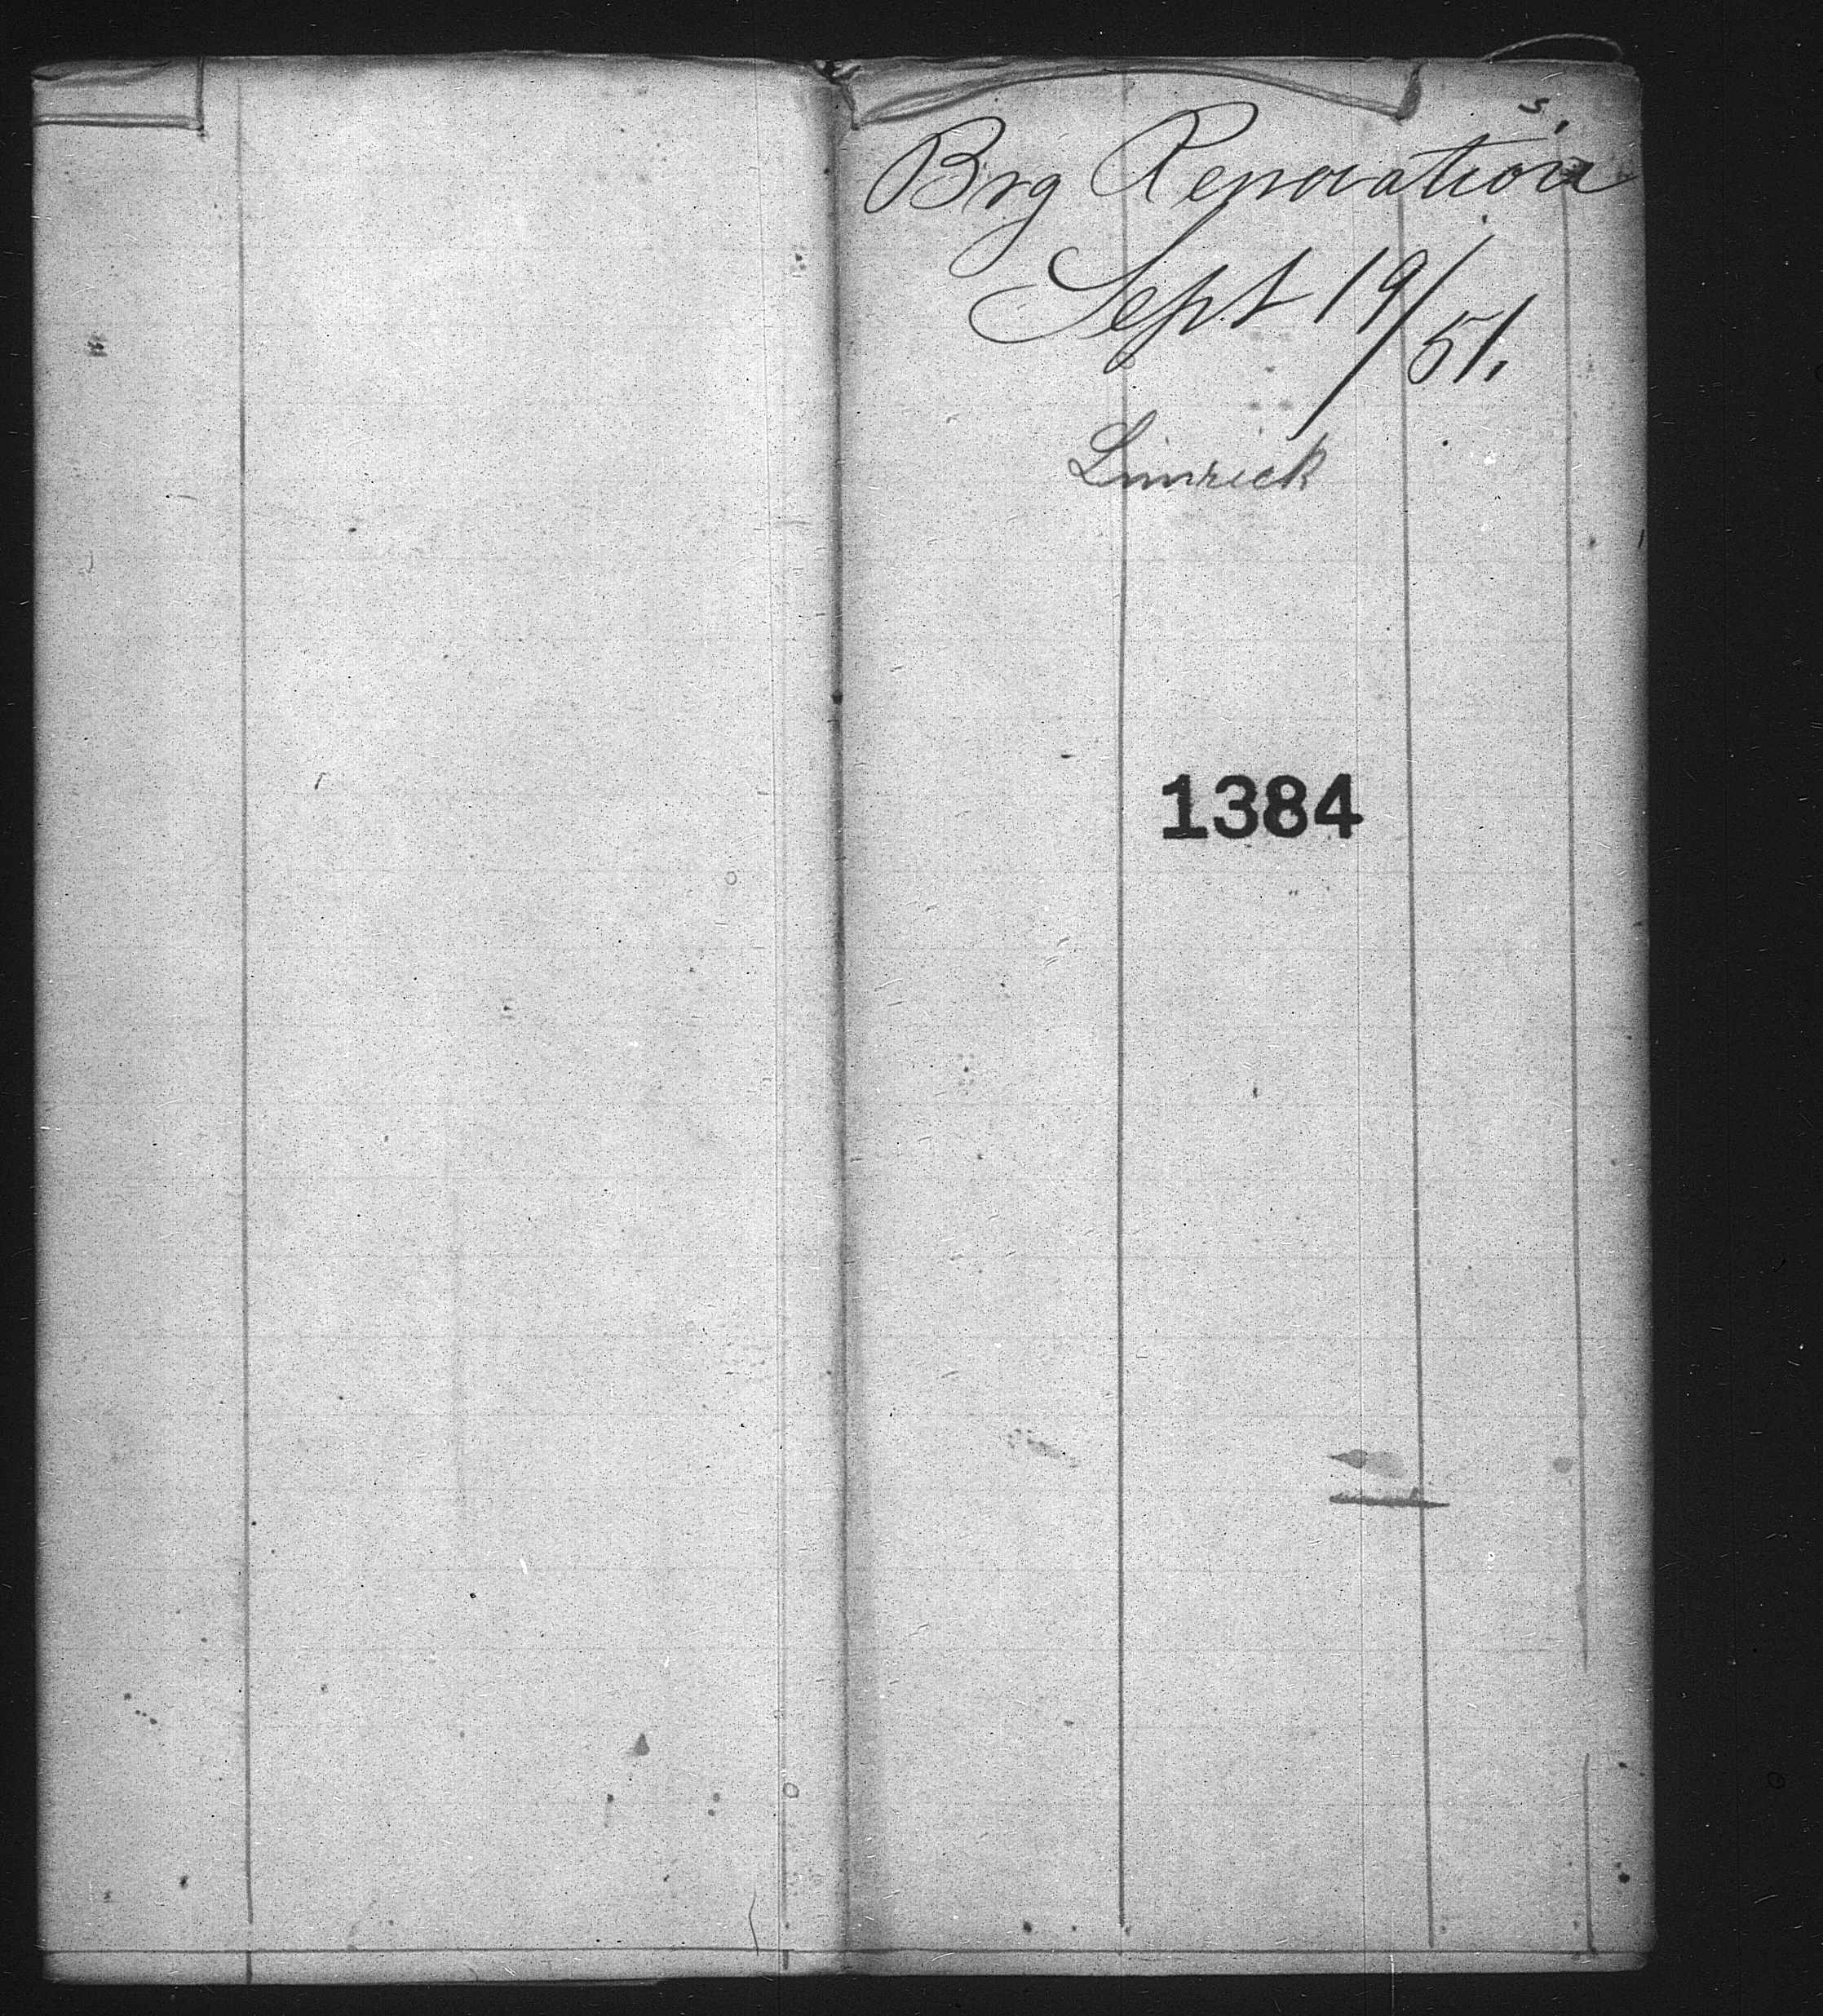 s.
Brg Renovation
Sept 19/51.
Limrick
1384